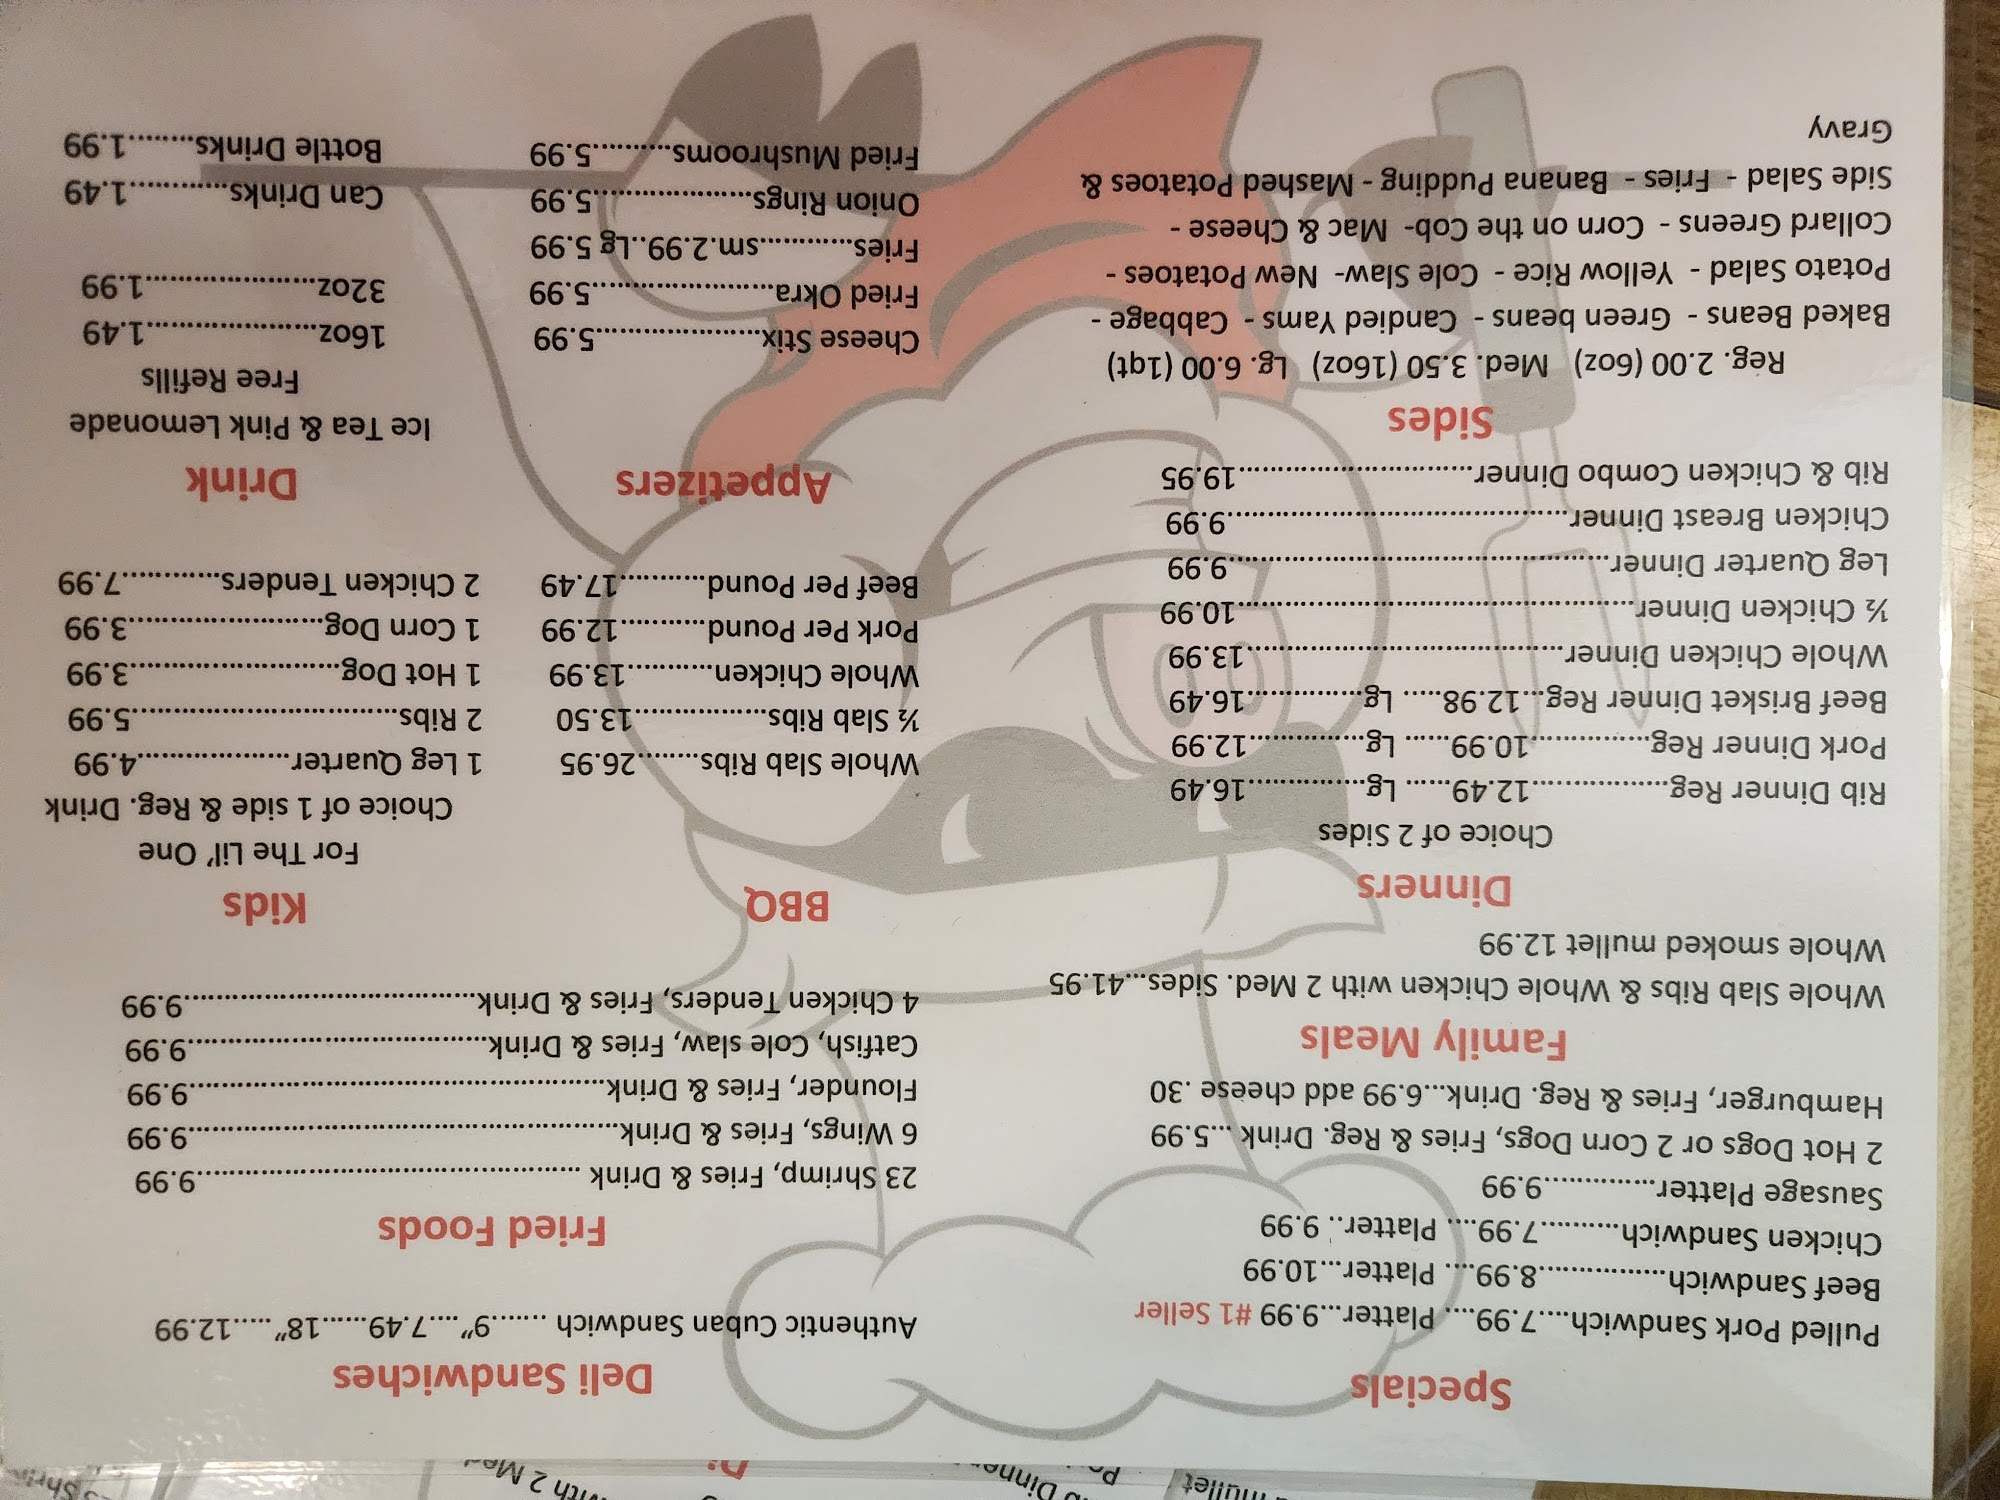 Specials
Pulled Pork Sandwich.....7.99.... Platter...9.99 #1 Seller
Beef Sandwich.................8.99.... Platter...10.99
Chicken Sandwich...........7.99.... Platter.. 9.99
Sausage Platter...............9.99
2 Hot Dogs or 2 Corn Dogs, Fries & Reg. Drink ...5.99
Hamburger, Fries & Reg. Drink...6.99 add cheese .30
Family Meals
Whole Slab Ribs & Whole Chicken with 2 Med. Sides...41.95
Whole smoked mullet 12.99
Dinners
Choice of 2 Sides
Rib Dinner Reg..................12.49...... Lg...............16.49
Pork Dinner Reg................10.99...... Lg...............12.99
Beef Brisket Dinner Reg...12.98..... Lg................16.49
Whole Chicken Dinner..........................................13.99
½ Chicken Dinner....................................................10.99
Leg Quarter Dinner..................................................9.99
Chicken Breast Dinner.............................................9.99
Rib & Chicken Combo Dinner...............................19.95
Sides
Reg. 2.00 (6oz) Med. 3.50 (16oz) Lg. 6.00 (1qt)
Baked Beans - Green beans - Candied Yams - Cabbage -
Potato Salad - Yellow Rice - Cole Slaw- New Potatoes -
Collard Greens - Corn on the Cob- Mac & Cheese -
Side Salad - Fries - Banana Pudding - Mashed Potatoes &
Gravy
Deli Sandwiches
Authentic Cuban Sandwich .......9”....7.49......18”.....12.99
Fried Foods
23 Shrimp, Fries & Drink ...................................................9.99
6 Wings, Fries & Drink.........................................................9.99
Flounder, Fries & Drink.......................................................9.99
Catfish, Cole slaw, Fries & Drink........................................9.99
4 Chicken Tenders, Fries & Drink.......................................9.99
BBQ
Whole Slab Ribs........26.95
½ Slab Ribs..................13.50
Whole Chicken...........13.99
Pork Per Pound...........12.99
Beef Per Pound...........17.49
Kids
For The Lil’ One
Choice of 1 side & Reg. Drink
1 Leg Quarter....................4.99
2 Ribs...................................5.99
1 Hot Dog...........................3.99
1 Corn Dog..........................3.99
2 Chicken Tenders.............7.99
Appetizers
Cheese Stix......................5.99
Fried Okra........................5.99
Fries.............sm.2.99..Lg 5.99
Onion Rings.....................5.99
Fried Mushrooms...........5.99
Drink
Ice Tea & Pink Lemonade
Free Refills
16oz.......................1.49
32oz.......................1.99
Can Drinks.............1.49
Bottle Drinks.........1.99